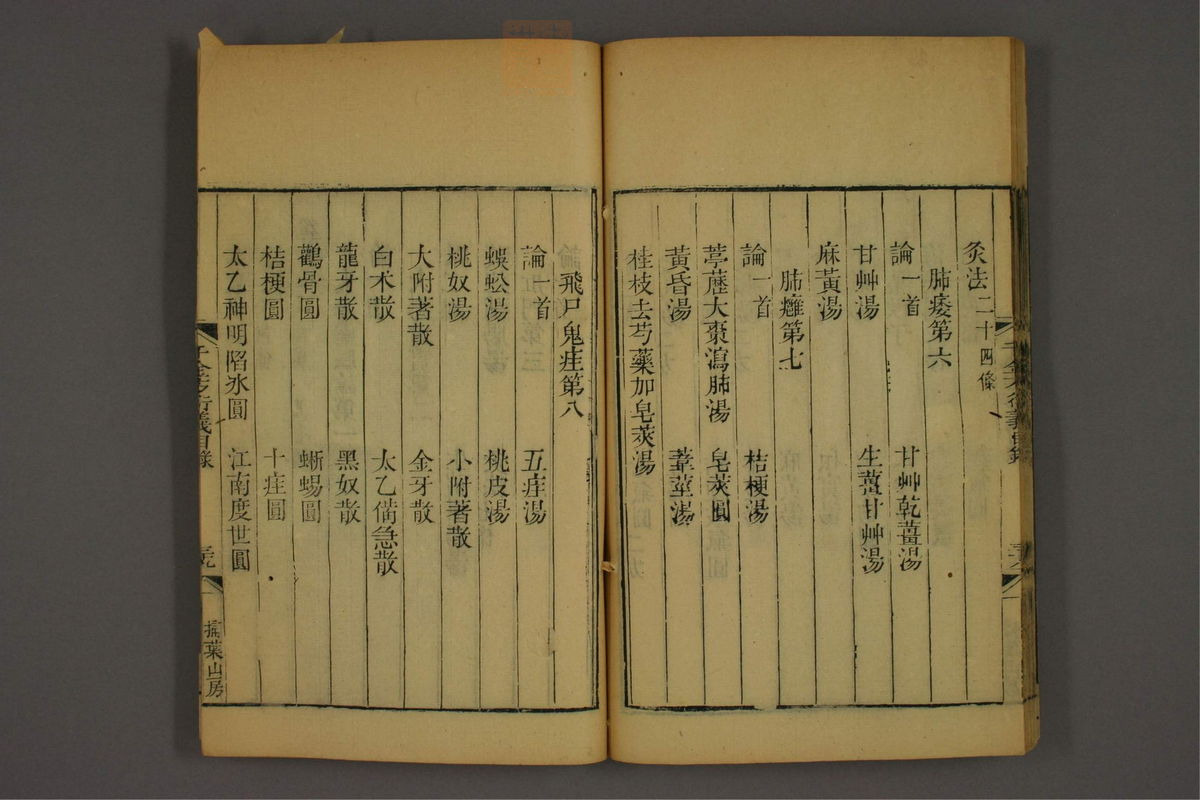 灸法二十四條
肺痿第六
論一首 甘艸乾薑湯
甘艸湯 生薑甘艸湯
麻黃湯
肺癰第七
論一首 桔梗湯
葶藶大棗瀉肺湯 皂莢圓
黃昏湯 葦莖湯
桂枝去芍藥加皂莢湯
飛尸鬼疰第八
論一首 五疰湯
蜈蚣湯 桃皮湯
桃奴湯 小附著散
大附著散 金牙散
白朮散 太乙備急散
龍牙散 黑奴散
鸛骨圓 蜥蜴圓
桔梗圓 十疰圓
太乙神明陷冰圓 江南度世圓
千金方衍義目錄
掃葉山房